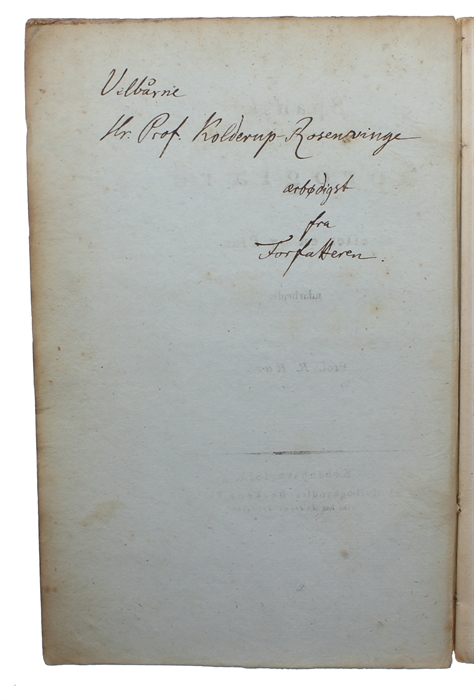 Velbårne
Hr. Prof. Kolderup-Rosenvinge
ærbødigst
fra
Forfatteren.